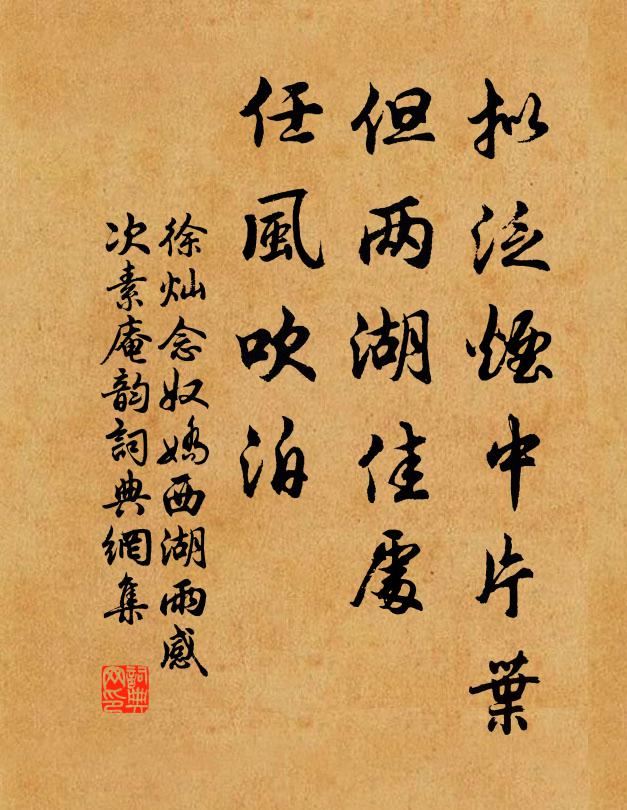 拟泛煙中片葉
但两湖佳處
任風吹泊
徐灿念奴嬌西湖雨感
次素庵韵詞典網集
詞典网印